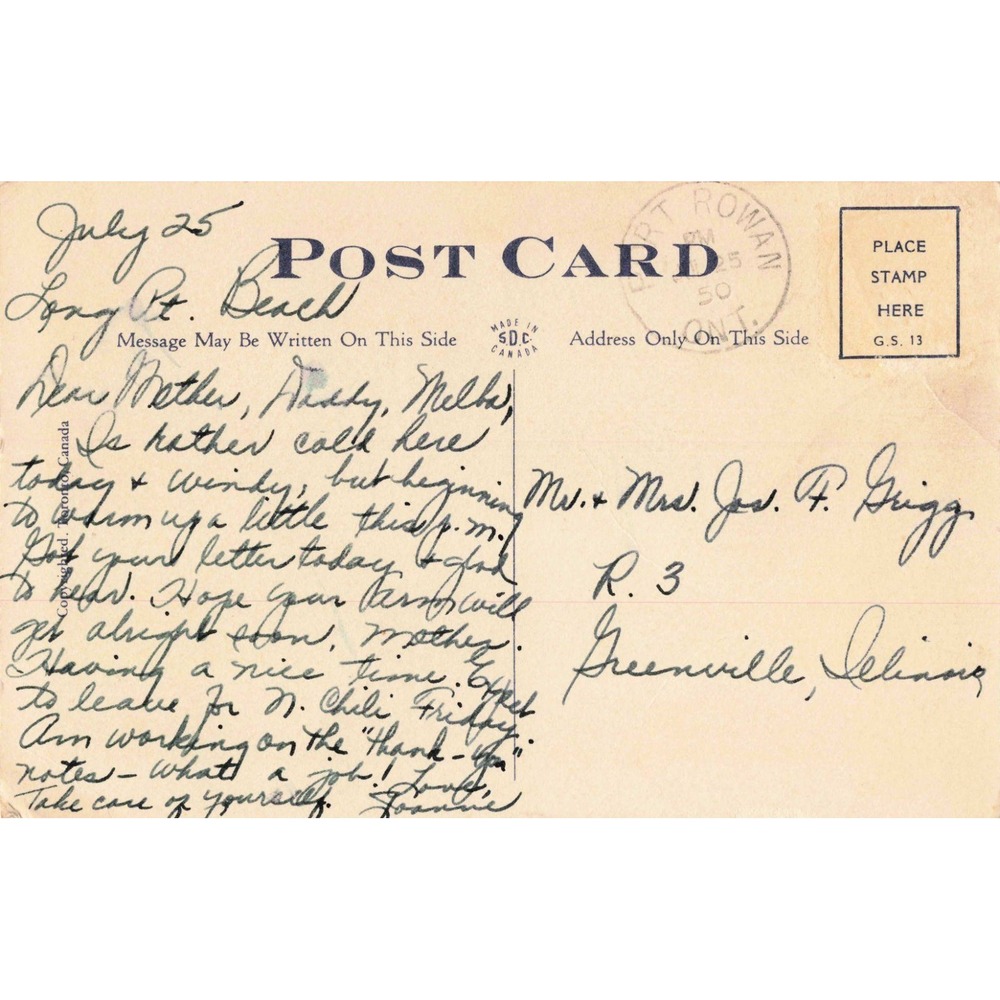 July 25
Long Pt. Beach
POST CARD
PORT ROWAN
PM
25
50
ONT.
PLACE
STAMP
HERE
G.S. 13
Message May Be Written On This Side
MADE IN
S.D.C.
CANADA
Address Only On This Side
Copyrighted. Toronto, Canada
Dear Mother, Daddy, Melba,
Is rather cold here
today + windy, but beginning
to warm up a little this p.m.
Got your letter today + glad
to hear. Hope your arm will
get alright soon, Mother.
Having a nice time. Expect
to leave for N. Chili Friday.
Am working on the "thank-you"
notes – what a job! Love,
Take care of yourself. Joanne
Mr. + Mrs. Jos. F. Grigg
R. 3
Greenville, Illinois